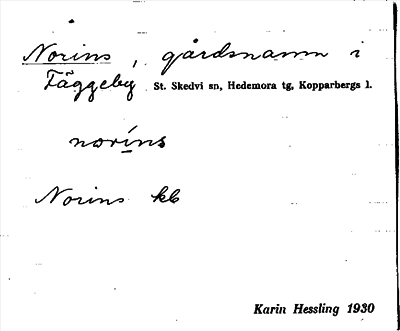 Norins, gårdsnamn i
Täggeby St. Skedvi sn, Hedemora tg, Kopparbergs l.
noríns
Norins kb
Karin Hessling 1930